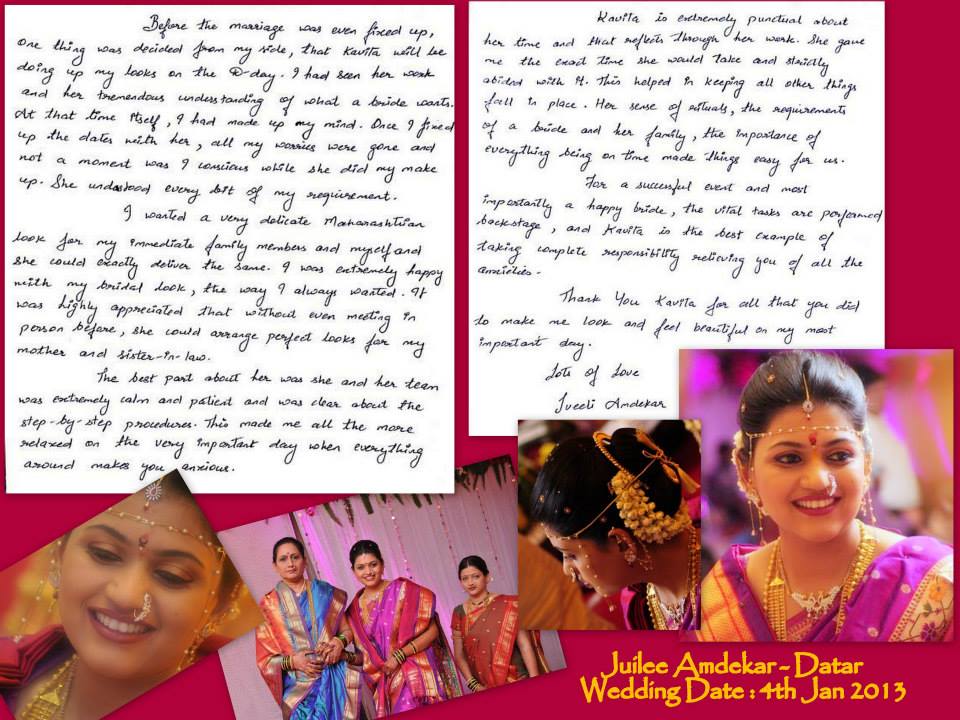 Before the marriage was even fixed up,
one thing was decided from my side, that Kavita will be
doing up my looks on the D-day. I had seen her work
and her tremendous understanding of what a bride wants.
At that time itself, I had made up my mind. Once I fixed
up the dates with her, all my worries were gone and
not a moment was I conscious while she did my make
up. She understood every bit of my requirement.
I wanted a very delicate Maharashtrian
look for my immediate family members and myself and
she could exactly deliver the same. I was extremely happy
with my bridal look, the way I always wanted. It
was highly appreciated that without even meeting in
person before, she could arrange perfect looks for my
mother and sister-in-law.
The best part about her was she and her team
was extremely calm and patient and was clear about the
step-by-step procedures. This made me all the more
relaxed on the very important day when everything
around makes you anxious.
Kavita is extremely punctual about
her time and that reflects through her work. She gave
me the exact time she would take and strictly
abided with it. This helped in keeping all other things
fall in place. Her sense of rituals, the requirements
of a bride and her family, the importance of
everything being on time made things easy for us.
For a successful event and most
importantly a happy bride, the vital tasks are performed
backstage, and Kavita is the best example of
taking complete responsibility relieving you of all the
anxieties.
Thank You Kavita for all that you did
to make me look and feel beautiful on my most
important day.
Lots of Love
Jueeli Amdekar
Juilee Amdekar - Datar
Wedding Date : 4th Jan 2013